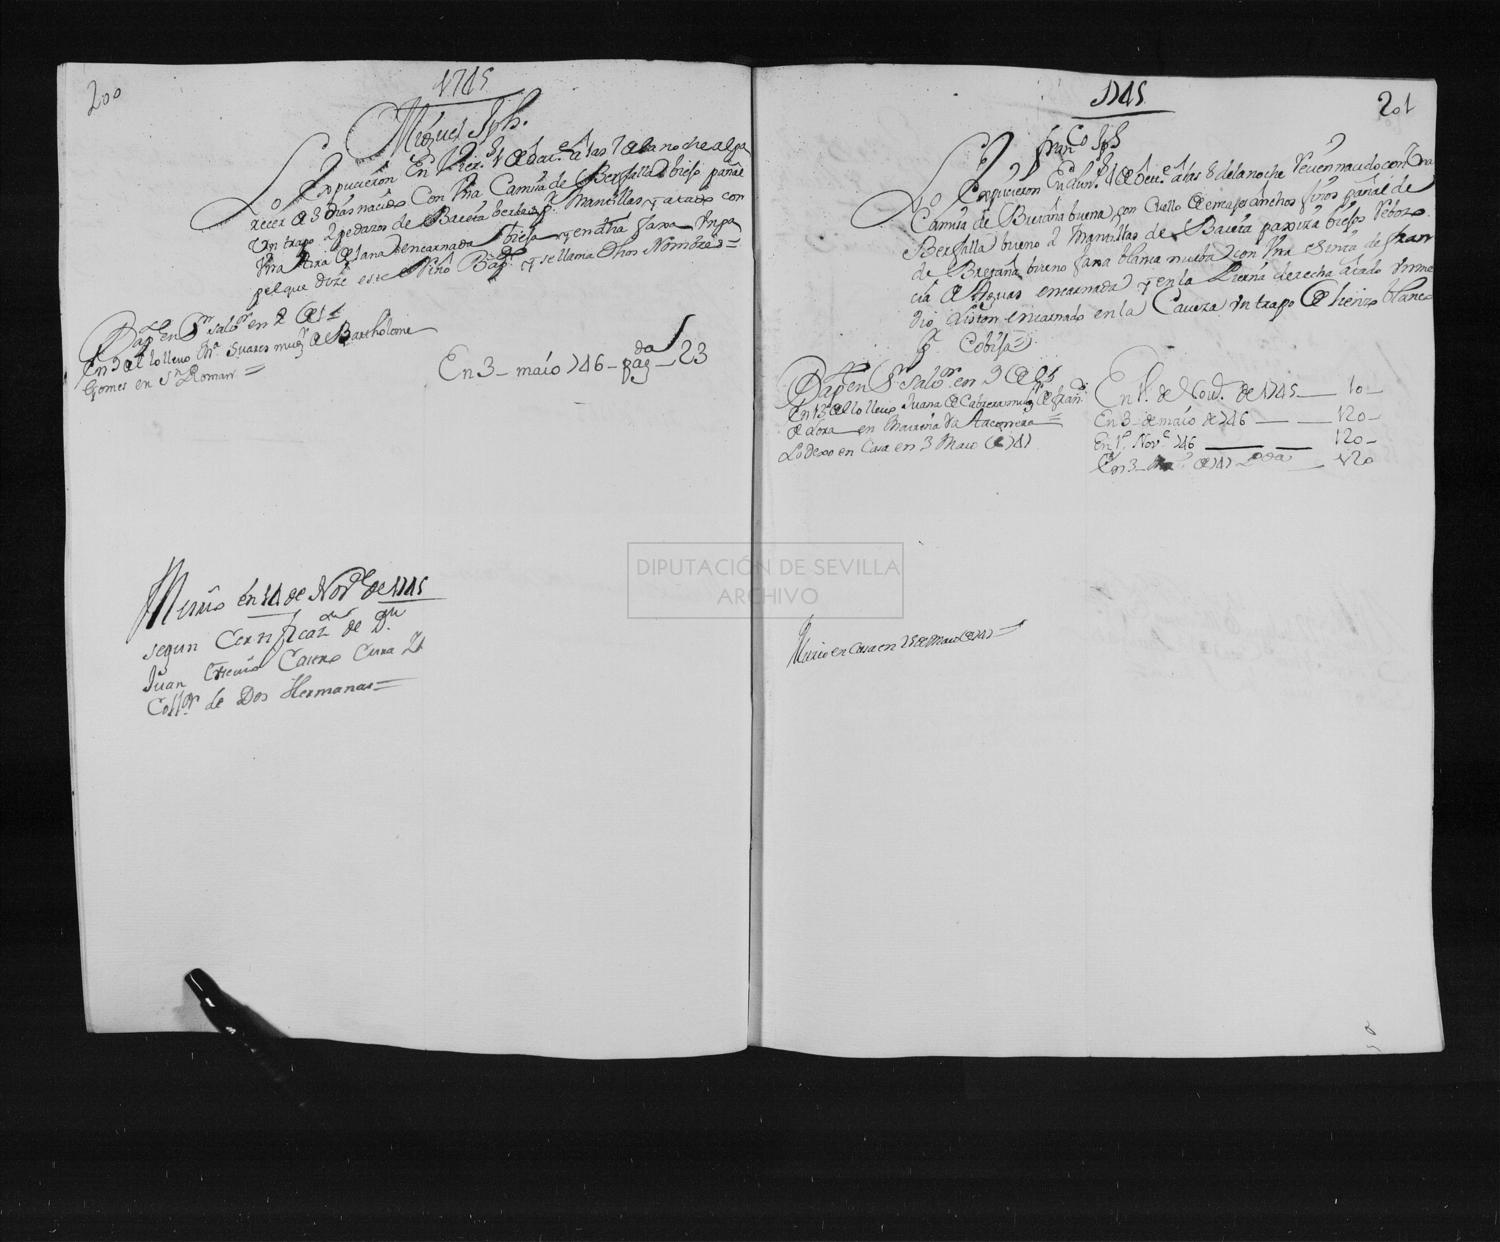 200
1745
Miguel Jph.
Lo expusieron En Vier.s 1 de Oct.e a las 7 de la noche al pa
recer de 3 dias nacido Con Vna Camisa de Bersalla biejo pañal
Vn trapo 2 pedazos de Baieta berde p.r Mantillas, y atado con
Vna tira de lana encarnada bieja y en dha faxa Vn pa
pel que dize este Niño Bap.do y se llama Dhos Nombres=
Bap. en S.r Salb.or en 2 de
En 3 de lo llevo Suares mug.r de Bartholome
Gomes en S.n Roman=
En 3 - maio 746 - pag.da - 23
Murio en 14 de Nov.e de 1745
segun Certificaz.on de D.n
Juan Casero Cura
Coll.or de Dos Hermanas=
1745
201
Fran.co Jph
Lo Expusieron En de a las 8 de la noche recien nacido con Vna
Camisa de Bretaña buena con Cuello de encajes anchos finos pañal de
Bersalla bueno 2 Mantillas de Baieta paxiza biejos rebozo
de Bretaña bueno faxa blanca nueba con Vna Sinta de fran
cia de Aguas encarnada y en la Pierna derecha atado Vn me
dio liston encarnado en la Caveza Vn trapo de lienzo blanco
p.r Cobija=
Bap. en S.r Salb.or en 3 de
En 13 de lo llevo Juana de Cabrera mug.r de fran.co
de Lora en Mairena
Lo dexo en Casa en 3 Maio de 747
En 1.o de Nov.e de 1745 10-
En 3 de maio de 746 120-
En 1.o Nov.e 746 120-
En 3 de 747 120
Murio en Casa en 25 de Maio de 747
DIPUTACIÓN DE SEVILLA
ARCHIVO